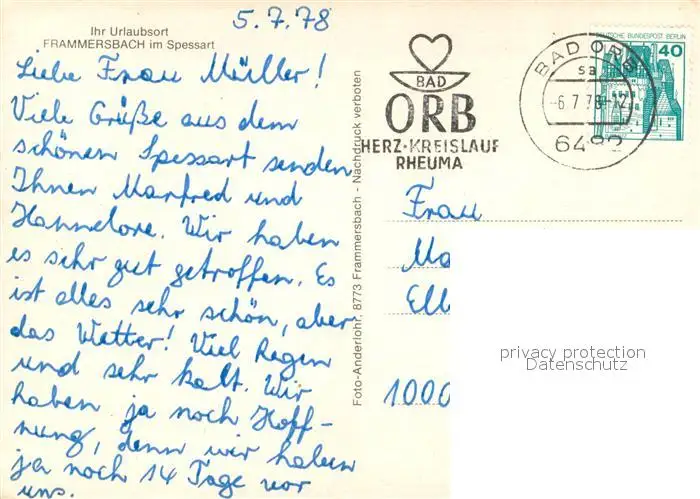 5.7.78
Ihr Urlaubsort
FRAMMERSBACH im Spessart
Liebe Frau Müller!
Viele Grüße aus dem
schönen Spessart senden
Ihnen Manfred und
Hannelore. Wir haben
es sehr gut getroffen. Es
ist alles sehr schön, aber
das Wetter! Viel Regen
und sehr kalt. Wir
haben ja noch Hoff-
nung, denn wir haben
ja noch 14 Tage vor
uns.
Foto-Anderlohr, 8773 Frammersbach - Nachdruck verboten
BAD
ORB
HERZ·KREISLAUF
RHEUMA
BAD ORB
sa
-6.7.78-12
DEUTSCHE BUNDESPOST BERLIN
40
Frau
Ma
Ell
1000
privacy protection
Datenschutz